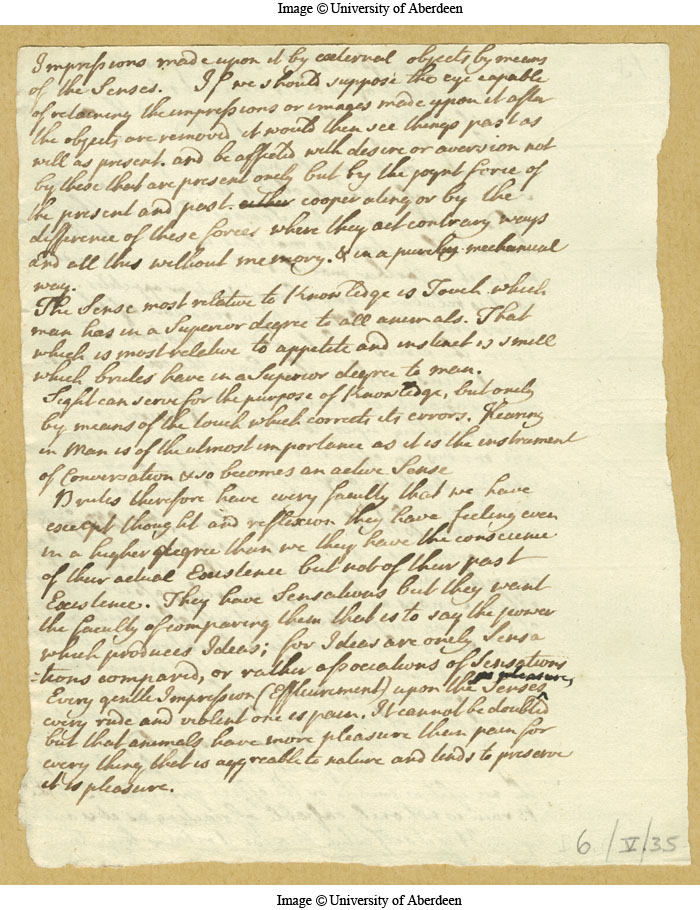 Image © University of Aberdeen
Impressions made upon it by external objects by means
of the Senses. If we should suppose the eye capable
of retaining the impressions or images made upon it after
the objects are removed it would then see things past as
well as present. and be affected with desire or aversion not
by these that are present onely but by the joynt force of
the present and past. either cooperating or by the
difference of these forces where they act contrary ways
and all this without memory. & in a purely mechanical
way.
The Sense most relative to Knowledge is Touch which
man has in a Superior degree to all animals. That
which is most relative to appetite and instinct is smell
which brutes have in a Superior degree to man.
Sight can serve for the purpose of Knowledge, but onely
by means of the touch which corrects its errors. Hearing
in Man is of the utmost importance as it is the instrument
of Conversation & so becomes an active Sense
Brutes therefore have every faculty that we have
except thought and reflexion they have feeling even
in a higher degree than we they have the conscience
of their actual Existence but not of their past
Existence. They have Sensations but they want
the faculty of comparing them that is to say the power
which produces Ideas; for Ideas are onely Sensa
-tions compared, or rather associations of Sensations
is pleasure,
Every gentle Impression (Effleurement) upon the Senses ^
every rude and violent one is pain. It cannot be doubted
but that animals have more pleasure than pain for
every thing that is aggreable to nature and tends to preserve
it is pleasure.
6/V/35
Image © University of Aberdeen